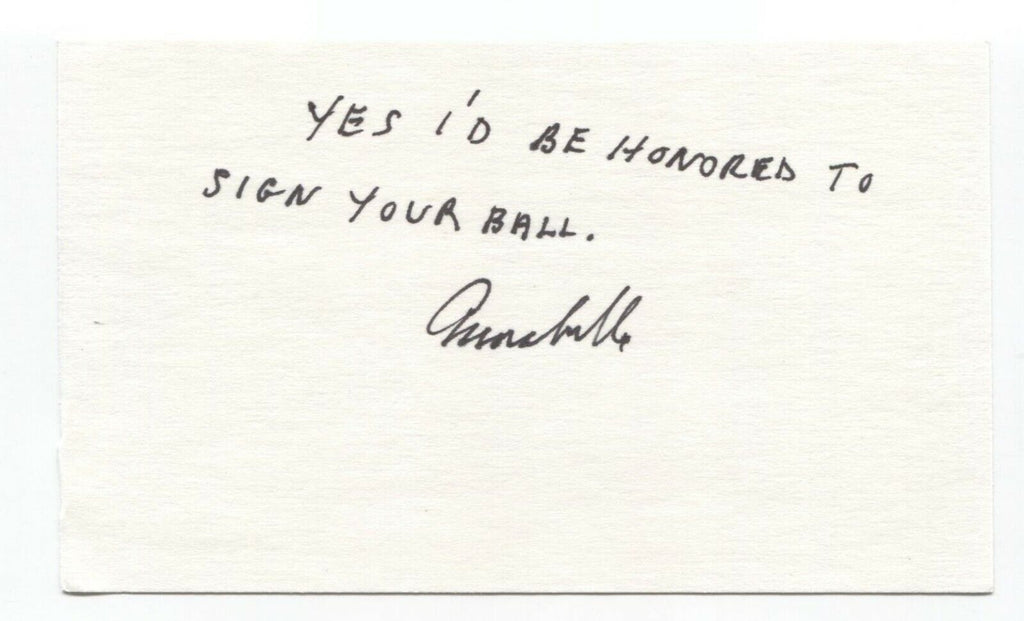 YES I'D BE HONORED TO
SIGN YOUR BALL.